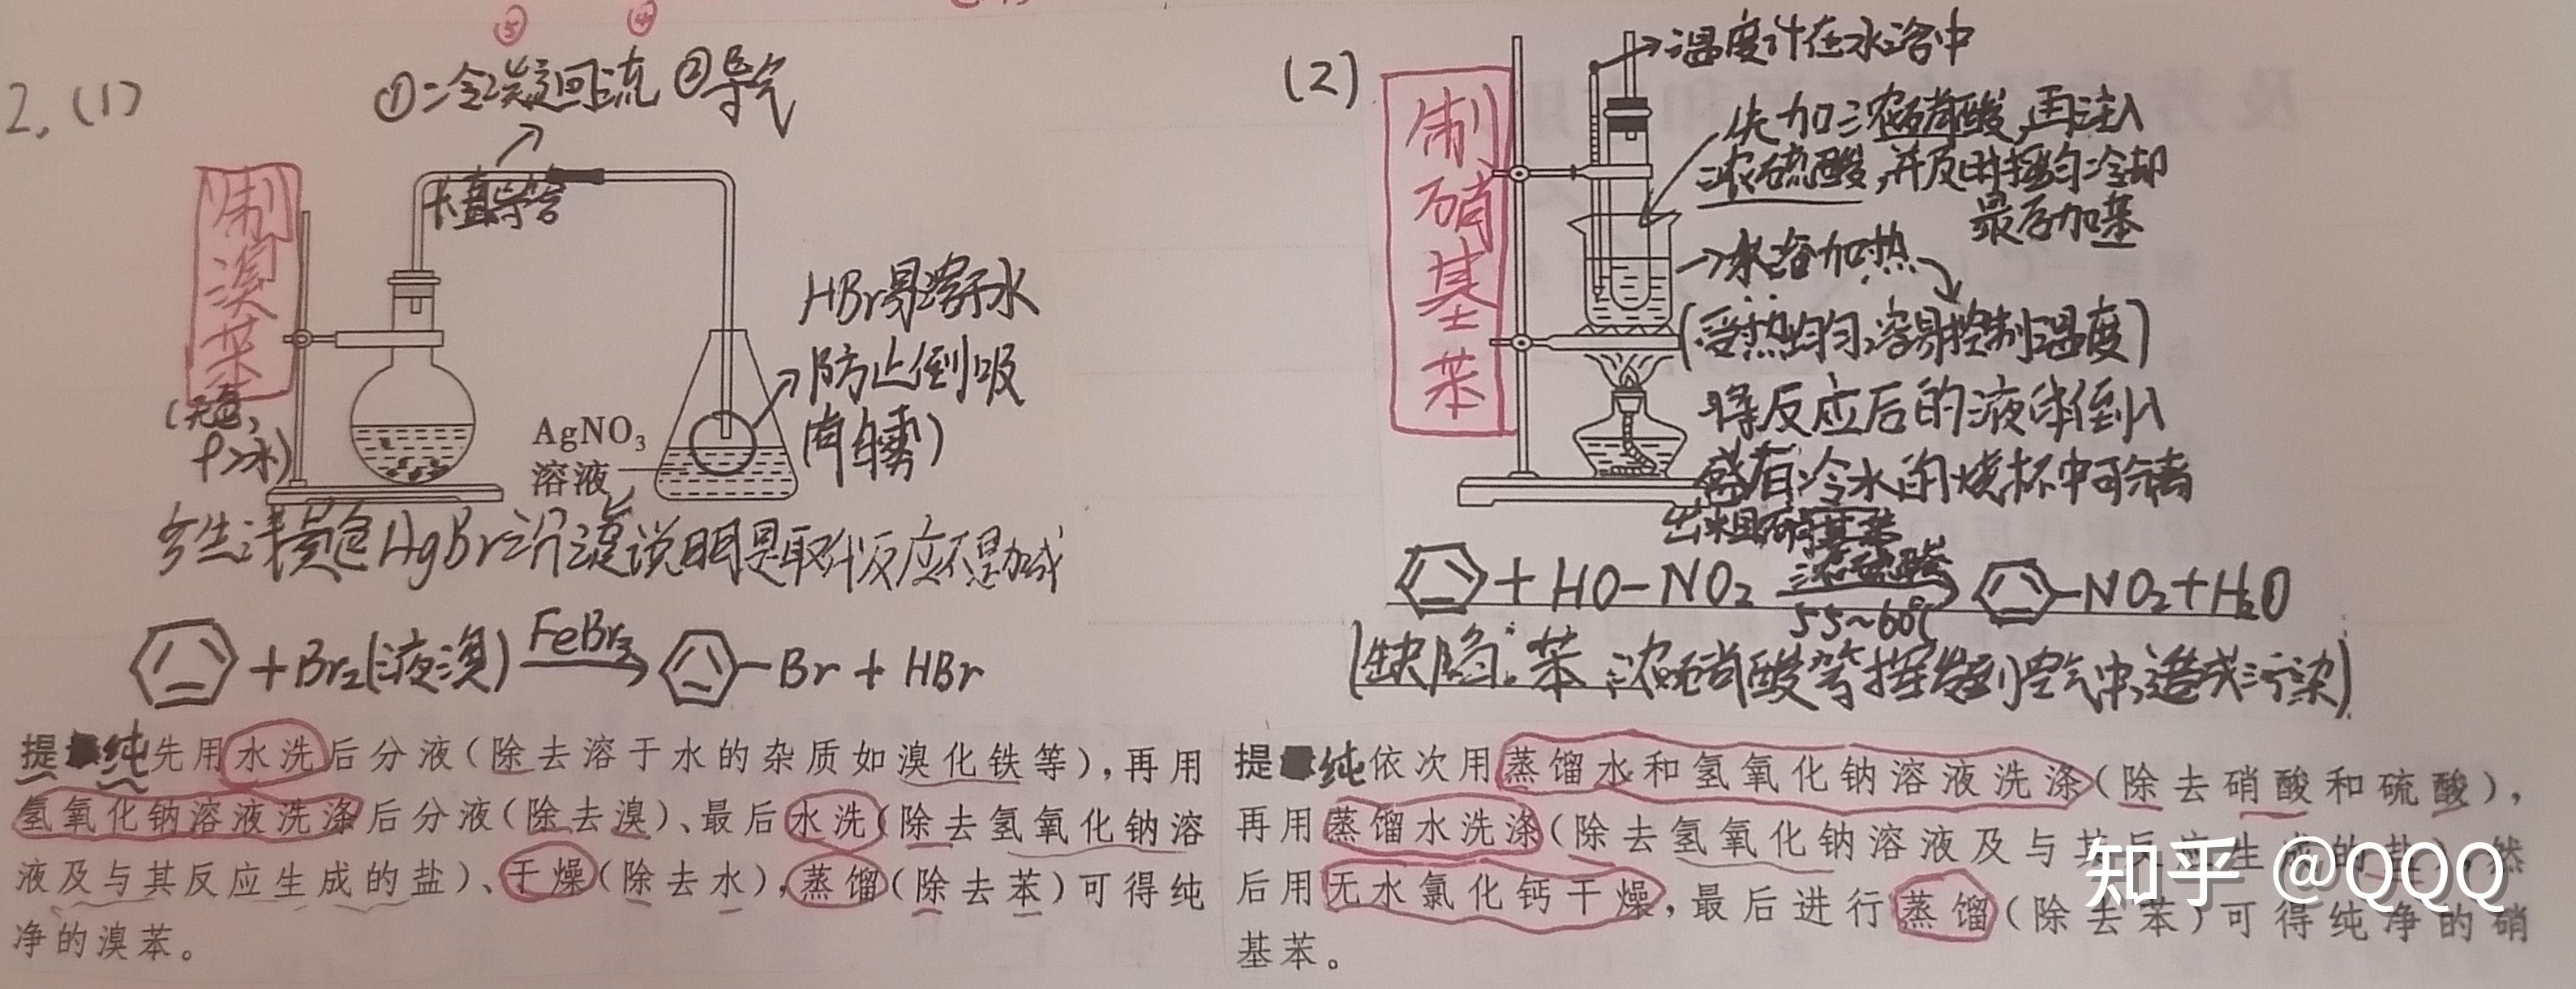 2.(1)
⑤ ④
①冷凝回流 ②导气
长直导管
制溴苯
(无色,
ρ>水)
HBr易溶于水
防止倒吸
(有白雾)
AgNO₃
溶液
产生浅黄色AgBr沉淀说明是取代反应不是加成
+Br₂(液溴) FeBr₃ —Br + HBr
提纯先用水洗后分液(除去溶于水的杂质如溴化铁等),再用
氢氧化钠溶液洗涤后分液(除去溴)、最后水洗(除去氢氧化钠溶
液及与其反应生成的盐)、干燥(除去水),蒸馏(除去苯)可得纯
净的溴苯。
(2)
制硝基苯
温度计在水浴中
先加浓硝酸,再注入
浓硫酸,并及时摇匀冷却
最后加苯
水浴加热
(受热均匀,容易控制温度)
将反应后的液体倒入
盛有冷水的烧杯中可分离
出粗硝基苯
+ HO-NO₂ 浓硫酸 55~60℃ —NO₂+H₂O
(缺陷:苯、浓硝酸等挥发到空气中,造成污染)
提纯依次用蒸馏水和氢氧化钠溶液洗涤(除去硝酸和硫酸),
再用蒸馏水洗涤(除去氢氧化钠溶液及与其反应生成的盐),然
后用无水氯化钙干燥,最后进行蒸馏(除去苯)可得纯净的硝
基苯。
知乎 @QQQ